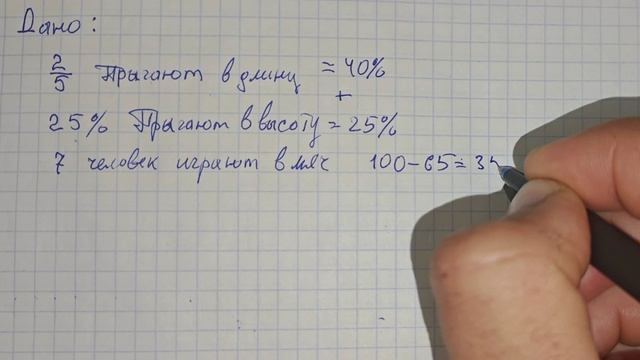 Дано:
2/5 Прыгают в длину = 40%
+
25% Прыгают в высоту = 25%
7 человек играют в мяч 100-65=35